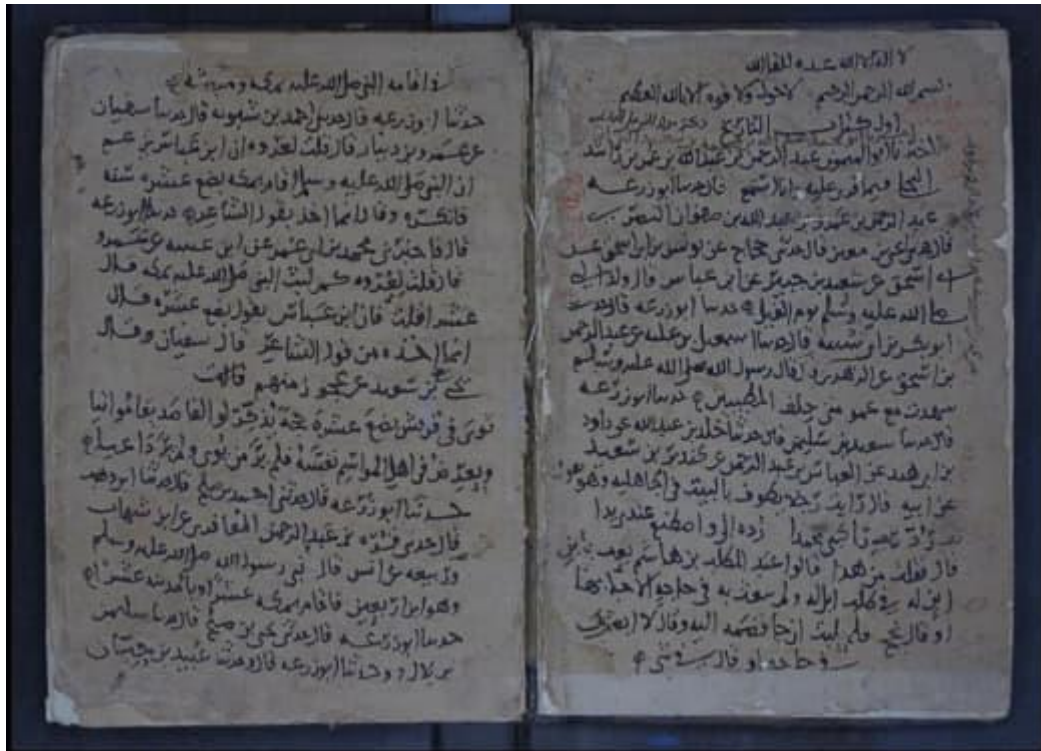 لا اله الا الله عدة للقا الله
بسم الله الرحمن الرحيم لا حول ولا قوة الا بالله العظيم
اول كتاب التاريخ
اخبرنا ابو الميمون عبد الرحمن بن عبد الله بن عمر بن راشد
البجلي فيما قرى عليه وانا اسمع قال حدثنا ابو زرعه
عبد الرحمن بن عمرو بن عبد الله بن صفوان النصري
قال حدثني يحيى بن معين قال حدثني حجاج عن يونس بن ابي اسحق عن
ابي اسحق عن سعيد بن جبير عن ابن عباس قال ولد النبي
صلى الله عليه وسلم يوم الفيل حدثنا ابو زرعه قال حدثنا
ابو بكر بن ابي شيبه قال حدثنا اسمعيل بن عليه عن عبد الرحمن
بن اسحق عن الزهري قال قال رسول الله صلى الله عليه وسلم
شهدت مع عمومتي حلف المطيبين حدثنا ابو زرعه
قال حدثنا سعيد بن سليمن قال حدثنا خلد بن عبد الله عن داود
بن ابي هند عن العباس بن عبد الرحمن عن كندير بن سعيد
عن ابيه قال رايت رجلا يطوف بالبيت في الجاهليه وهو يقول
رده الي واصطنع عندي يدا
قال فقلت من هذا قالوا عبد المطلب بن هاشم بعث بابن
ابن له في طلب ابل له ولم يبعث به في حاجه الا جا بها
او قال نجح فلم يلبث ان جا فضمه اليه وقال لا
في حاجه او قال في شي
في اقامه النبي صلى الله عليه بمكه ومدينته
حدثنا ابو زرعه قال حدثني احمد بن شبويه قال حدثنا سفيان
عن عمرو بن دينار قال قلت لعروه ان ابن عباس يزعم
ان النبي صلى الله عليه وسلم اقام بمكه بضع عشره سنه
وقال انما اخذ بقول الشاعر حدثنا ابو زرعه
قال فاخبرني محمد بن ابي عمر عن ابن عيينه عن عمرو
قال قلت لعروه كم لبث النبي صلى الله عليه بمكه قال
عشرا قلت فان ابن عباس يقول بضع عشره قال
انما اخذه من قول الشاعر قال سفيان وقال
يحيى بن سعيد عن عجوز منهم قالت
ثوى في قريش بضع عشرة حجة يذكر لو
ويعرض في اهل المواسم نفسه فلم ير من يوي ولم ير داعيا
حدثنا ابو زرعه قال حدثني احمد بن صلح قال حدثنا ابن وهب
قال حدثني قره بن عبد الرحمن المعافري عن ابن شهاب
وربيعه عن انس قال نبي رسول الله صلى الله عليه وسلم
وهو ابن اربعين فاقام بمكه عشرا وبالمدينه عشرا
حدثنا ابو زرعه قال حدثني يحيى بن صلح قال حدثنا سليمن
بن بلال وحدثنا ابو زرعه قال وحدثنا عبيد بن